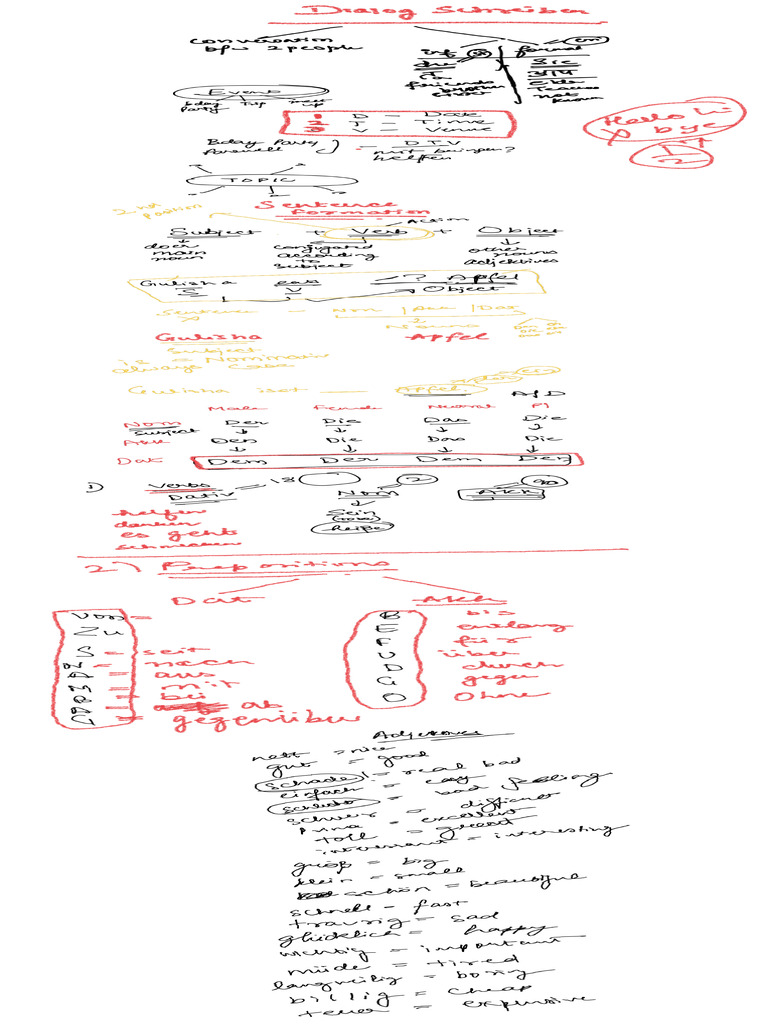 Dialog Schreiben
conversation
b/w 2 people
inf
formal
du
Sie
friends
brother
elder
Teacher
not
known
Event
bday
Party
Trip
meet
up
Hallo Hi
X bye
1 D - Date
2 T - Time
3 V - Venue
Bday Party
farewell
- DTV
- mit bringen?
helfen
TOPIC
Sentence
formation
2nd
position
Action
Subject + Verb + Object
doer
main
noun
conjugated
according
to
subject
other
nouns
adjectives
Gulisha ess ? Apfel
S V Object
Sentence - Nom / Akk / Dat
2
Nouns
Gulisha Apfel
Subject
is = Nominativ
always case
Gulisha isst ___ Apfel.
A/D
Male Female Neutral Pl
Nom Der Die Das Die
Subject
Akk Den Die Das Die
Dat Dem Der Dem Den
1) Verbs
Dativ = 18
Nom 2
Akk
Sein
heiße
helfen
danken
es geht
schmecken
2) Prepositions
Dat Akk
Von =
Zu
S = seit
N = nach
A = aus
M = mit
B = bei
A = ab
G = gegenüber
B bis
E entlang
F für
U über
D durch
G gegen
O Ohne
Adjectives
nett = nice
gut = good
schade = real bad
einfach = easy
schlecht = bad feeling
schwer = difficult
prima = excellent
toll = great
interessant = interesting
groß = big
klein = small
schön = beautiful
schnell - fast
traurig = sad
glücklich = happy
wichtig = important
müde = tired
langweilig = boring
billig = cheap
teuer = expensive